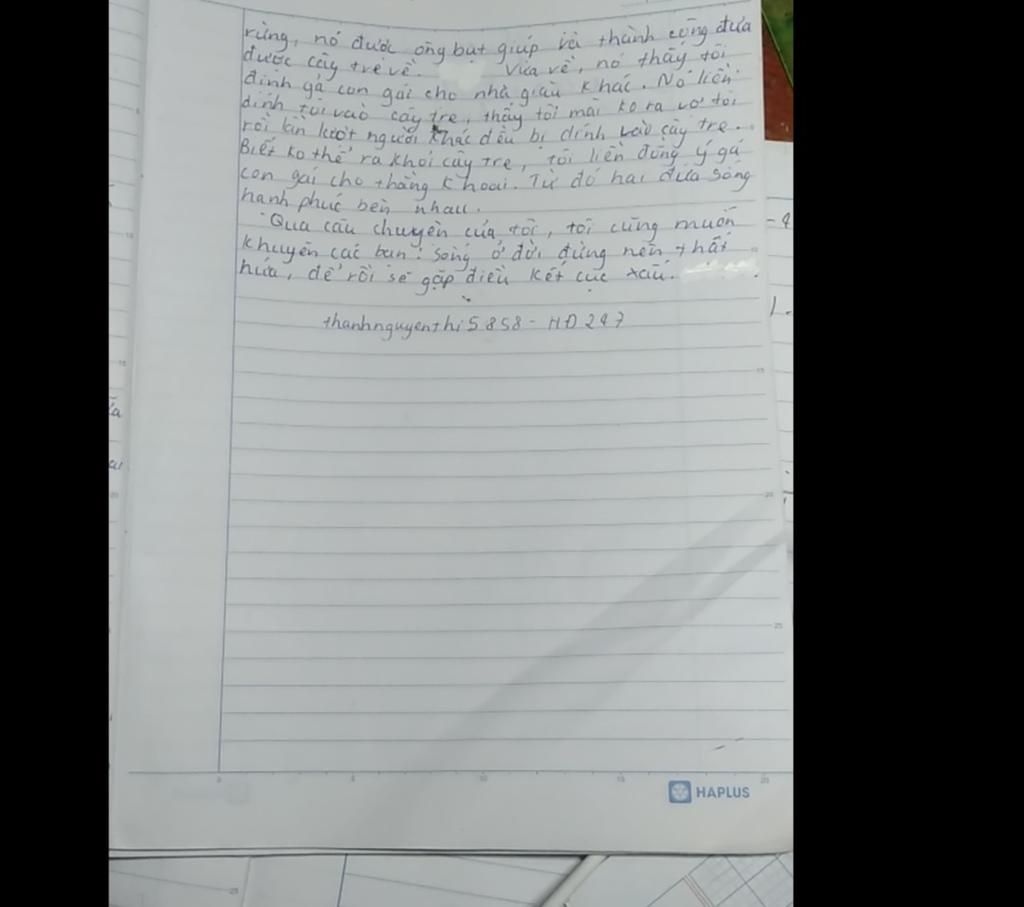 rừng, nó được ông bụt giúp và thành công đưa
được cây tre về. Vừa về, nó thấy tôi
định gả con gái cho nhà giàu khác. Nó liền
dính tôi vào cây tre, thấy tôi mãi ko ra vợ tôi
rồi lần lượt người khác đều bị dính vào cây tre.
Biết ko thể ra khỏi cây tre, tôi liền đồng ý gả
con gái cho thằng Khoai. Từ đó hai đứa sống
hạnh phúc bên nhau.
Qua câu chuyện của tôi, tôi cũng muốn
khuyên các bạn: Sống ở đời đừng nên thất
hứa, để rồi sẽ gặp điều kết cục xấu.
thanhnguyenthi5858 - HD247
HAPLUS